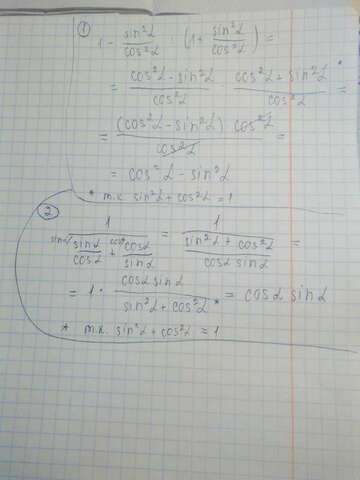 ①
1 - sin²α/cos²α : (1 + sin²α/cos²α) =
= (cos²α - sin²α)/cos²α : (cos²α + sin²α)*/cos²α =
= (cos²α - sin²α) cos²α / cos²α =
= cos²α - sin²α
* т.к. sin²α + cos²α = 1
②
1/(sinα/cosα + cosα/sinα) = 1/((sin²α + cos²α)/(cosα sinα)) =
= 1 · cosα sinα/(sin²α + cos²α)* = cosα sinα
* т.к. sin²α + cos²α = 1